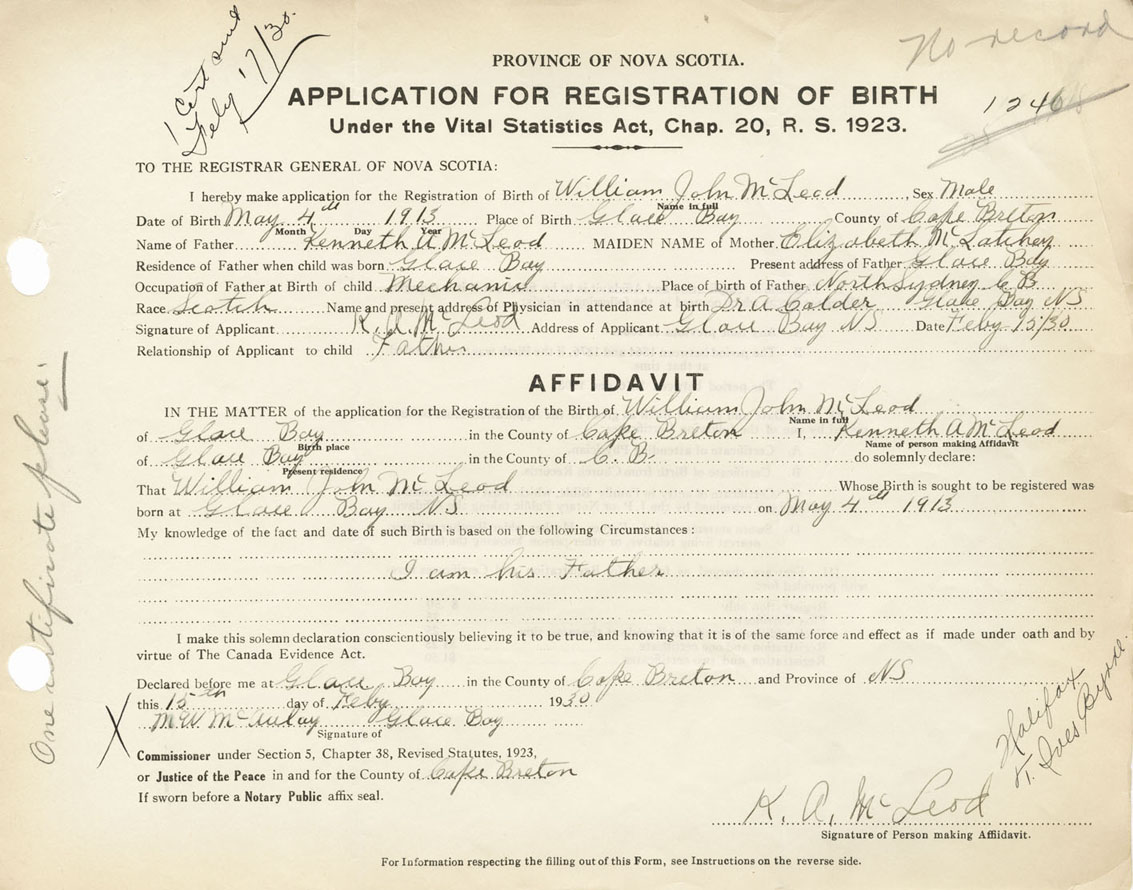 1 Cert sent
Feby 17/30.
No record
PROVINCE OF NOVA SCOTIA.
APPLICATION FOR REGISTRATION OF BIRTH
1246
Under the Vital Statistics Act, Chap. 20, R. S. 1923.
TO THE REGISTRAR GENERAL OF NOVA SCOTIA:
I hereby make application for the Registration of Birth of William John McLeod, Sex Male
Name in full
Date of Birth May 4th 1913 Place of Birth Glace Bay County of Cape Breton
Month Day Year
Name of Father Kenneth A McLeod MAIDEN NAME of Mother Elizabeth McLatchey
Residence of Father when child was born Glace Bay Present address of Father Glace Bay
Occupation of Father at Birth of child Mechanic Place of birth of Father North Sydney C B
Race Scotch Name and present address of Physician in attendance at birth Dr A Calder Glace Bay NS
Signature of Applicant K. A. McLeod Address of Applicant Glace Bay NS Date Feby 15/30
Relationship of Applicant to child Father
AFFIDAVIT
IN THE MATTER of the application for the Registration of the Birth of William John McLeod
Name in full
of Glace Bay in the County of Cape Breton I, Kenneth A McLeod
Birth place Name of person making Affidavit
of Glace Bay in the County of C. B. do solemnly declare:
Present residence
That William John McLeod Whose Birth is sought to be registered was
born at Glace Bay NS on May 4th 1913
My knowledge of the fact and date of such Birth is based on the following Circumstances:
I am his Father
I make this solemn declaration conscientiously believing it to be true, and knowing that it is of the same force and effect as if made under oath and by
virtue of The Canada Evidence Act.
Declared before me at Glace Bay in the County of Cape Breton and Province of NS
this 15th day of Feby 1930
M W McAulay Glace Bay
Signature of
Commissioner under Section 5, Chapter 38, Revised Statutes, 1923,
or Justice of the Peace in and for the County of Cape Breton
If sworn before a Notary Public affix seal.
K. A. McLeod
Signature of Person making Affiidavit.
For Information respecting the filling out of this Form, see Instructions on the reverse side.
One certificate please.
Halifax
Ives Byrne.